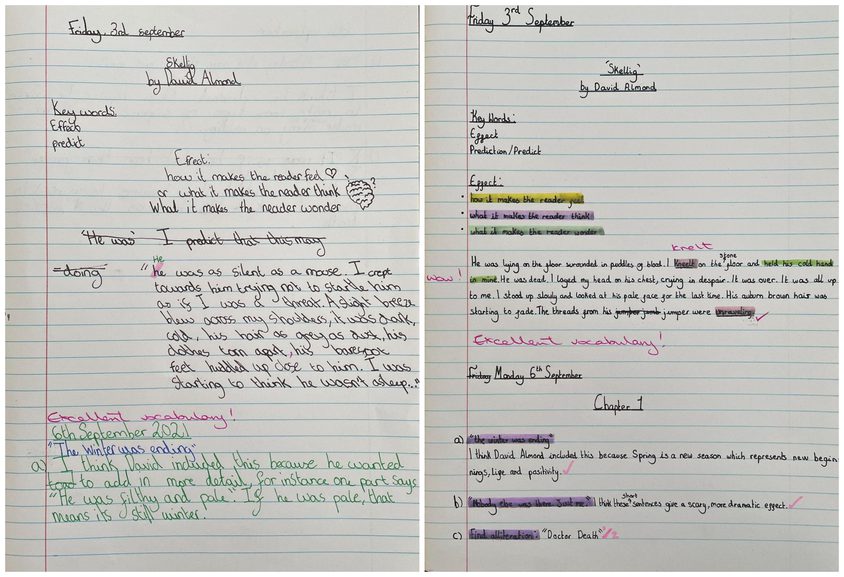 Friday, 3rd september
Skellig
by David Almond
Key words:
Effect
predict
Effect:
how it makes the reader feel
or what it makes the reader think
What it makes the reader wonder
"He was" I predict that this may
doing
He
"He was as silent as a mouse. I crept
towards him trying not to startle him
as if I was a threat. A slight breeze
blew across my shoulders, it was dark,
cold, his hair as grey as dust, his
clothes torn apart, his barefoot
feet huddled up close to him. I was
starting to think he wasn't asleep..."
Excellent vocabulary!
6th September 2021
"The Winter was ending"
a) I think David included this because he wanted
to add in more detail, for instance one part says
"He was filthy and pale" If he was pale, that
means its still winter.
Friday 3rd September
"Skellig"
by David Almond
Key Words:
Effect
Prediction/Predict
Effect:
• how it makes the reader feel
• what it makes the reader think
• what it makes the reader wonder
knelt
stone
He was lying on the floor surrounded in puddles of blood. I knealt on the floor and held his cold hand
wow!
in mine. He was dead. I layed my head on his chest, crying in despair. It was over. It was all up
to me. I stood up slowly and looked at his pale face for the last time. His auburn brown hair was
starting to fade. The threads from his jumper were unraveling
Excellent vocabulary!
Friday Monday 6th September
Chapter 1
a) "the winter was ending"
I think David Almond included this because Spring is a new season which represents new begin
nings, life and positivity.
short
b) "Nobody else was there. Just me." I think these sentences give a scary, more dramatic effect.
c) Find alliteration: "Doctor Death"